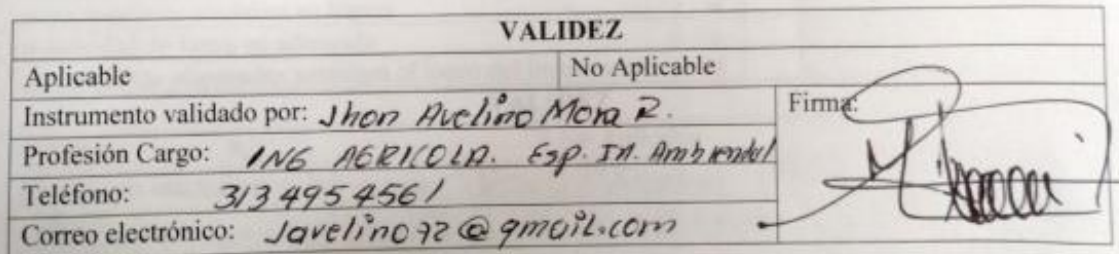 VALIDEZ
Aplicable No Aplicable
Instrumento validado por: Jhon Avelino Mora R. Firma:
Profesión Cargo: ING AGRICOLA. Esp. IN. Ambiental
Teléfono: 313 495 4561
Correo electrónico: Javelino72@gmail.com